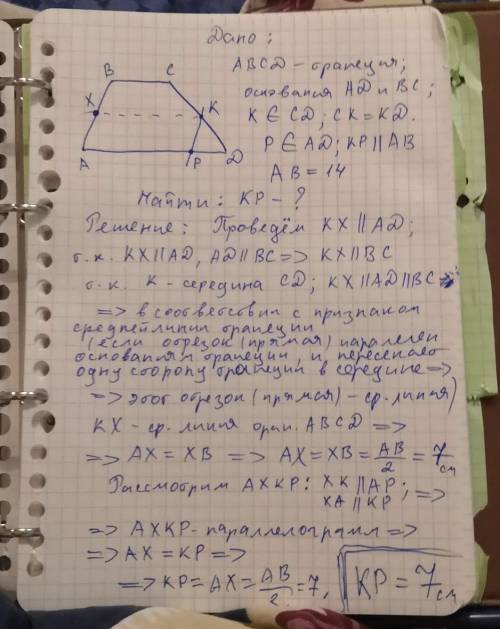 Дано:
ABCD - трапеция;
основания AD и BC;
K ∈ CD; CK = KD.
P ∈ AD; KP || AB
AB = 14
B C
X K
A P D
Найти: KP - ?
Решение: Проведём KX || AD;
т.к. KX || AD, AD || BC => KX || BC
т.к. K - середина CD; KX || AD || BC
=> в соответствии с признаком
средней линии трапеции
(если отрезок (прямая) паралелен
основаниям трапеции, и пересекает
одну сторону трапеции в середине =>
=> этот отрезок (прямая) - ср. линия)
KX - ср. линия трап. ABCD =>
=> AX = XB => AX = XB = AB/2 = 7 см
Рассмотрим AXKP: XK || AP; =>
XA || KP
=> AXKP - параллелограмм =>
=> AX = KP =>
=> KP = AX = AB/2 = 7, KP = 7 см